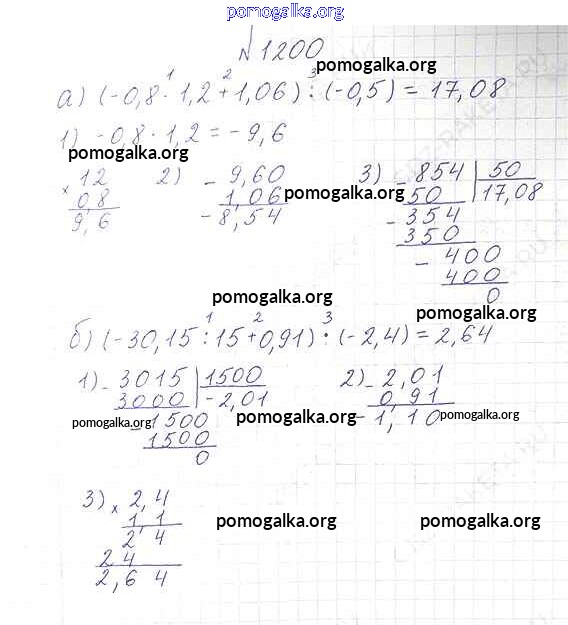 pomogalka.org
№1200
pomogalka.org
1 2 3
а) (-0,8 · 1,2 + 1,06) : (-0,5) = 17,08
1) -0,8 · 1,2 = -9,6
pomogalka.org
× 12
0,8
9,6
2) - 9,60
1,06
- 8,54
pomogalka.org
3) - 854 | 50
50 | 17,08
- 354
350
- 400
400
0
pomogalka.org
pomogalka.org
1 2 3
б) (-30,15 : 15 + 0,91) · (-2,4) = 2,64
1) - 3015 | 1500
3000 | -2,01
pomogalka.org
- 1500
1500
0
2) - 2,01
0,91
- 1,10
pomogalka.org
pomogalka.org
3) × 2,4
1,1
2 4
2 4
2,6 4
pomogalka.org
pomogalka.org